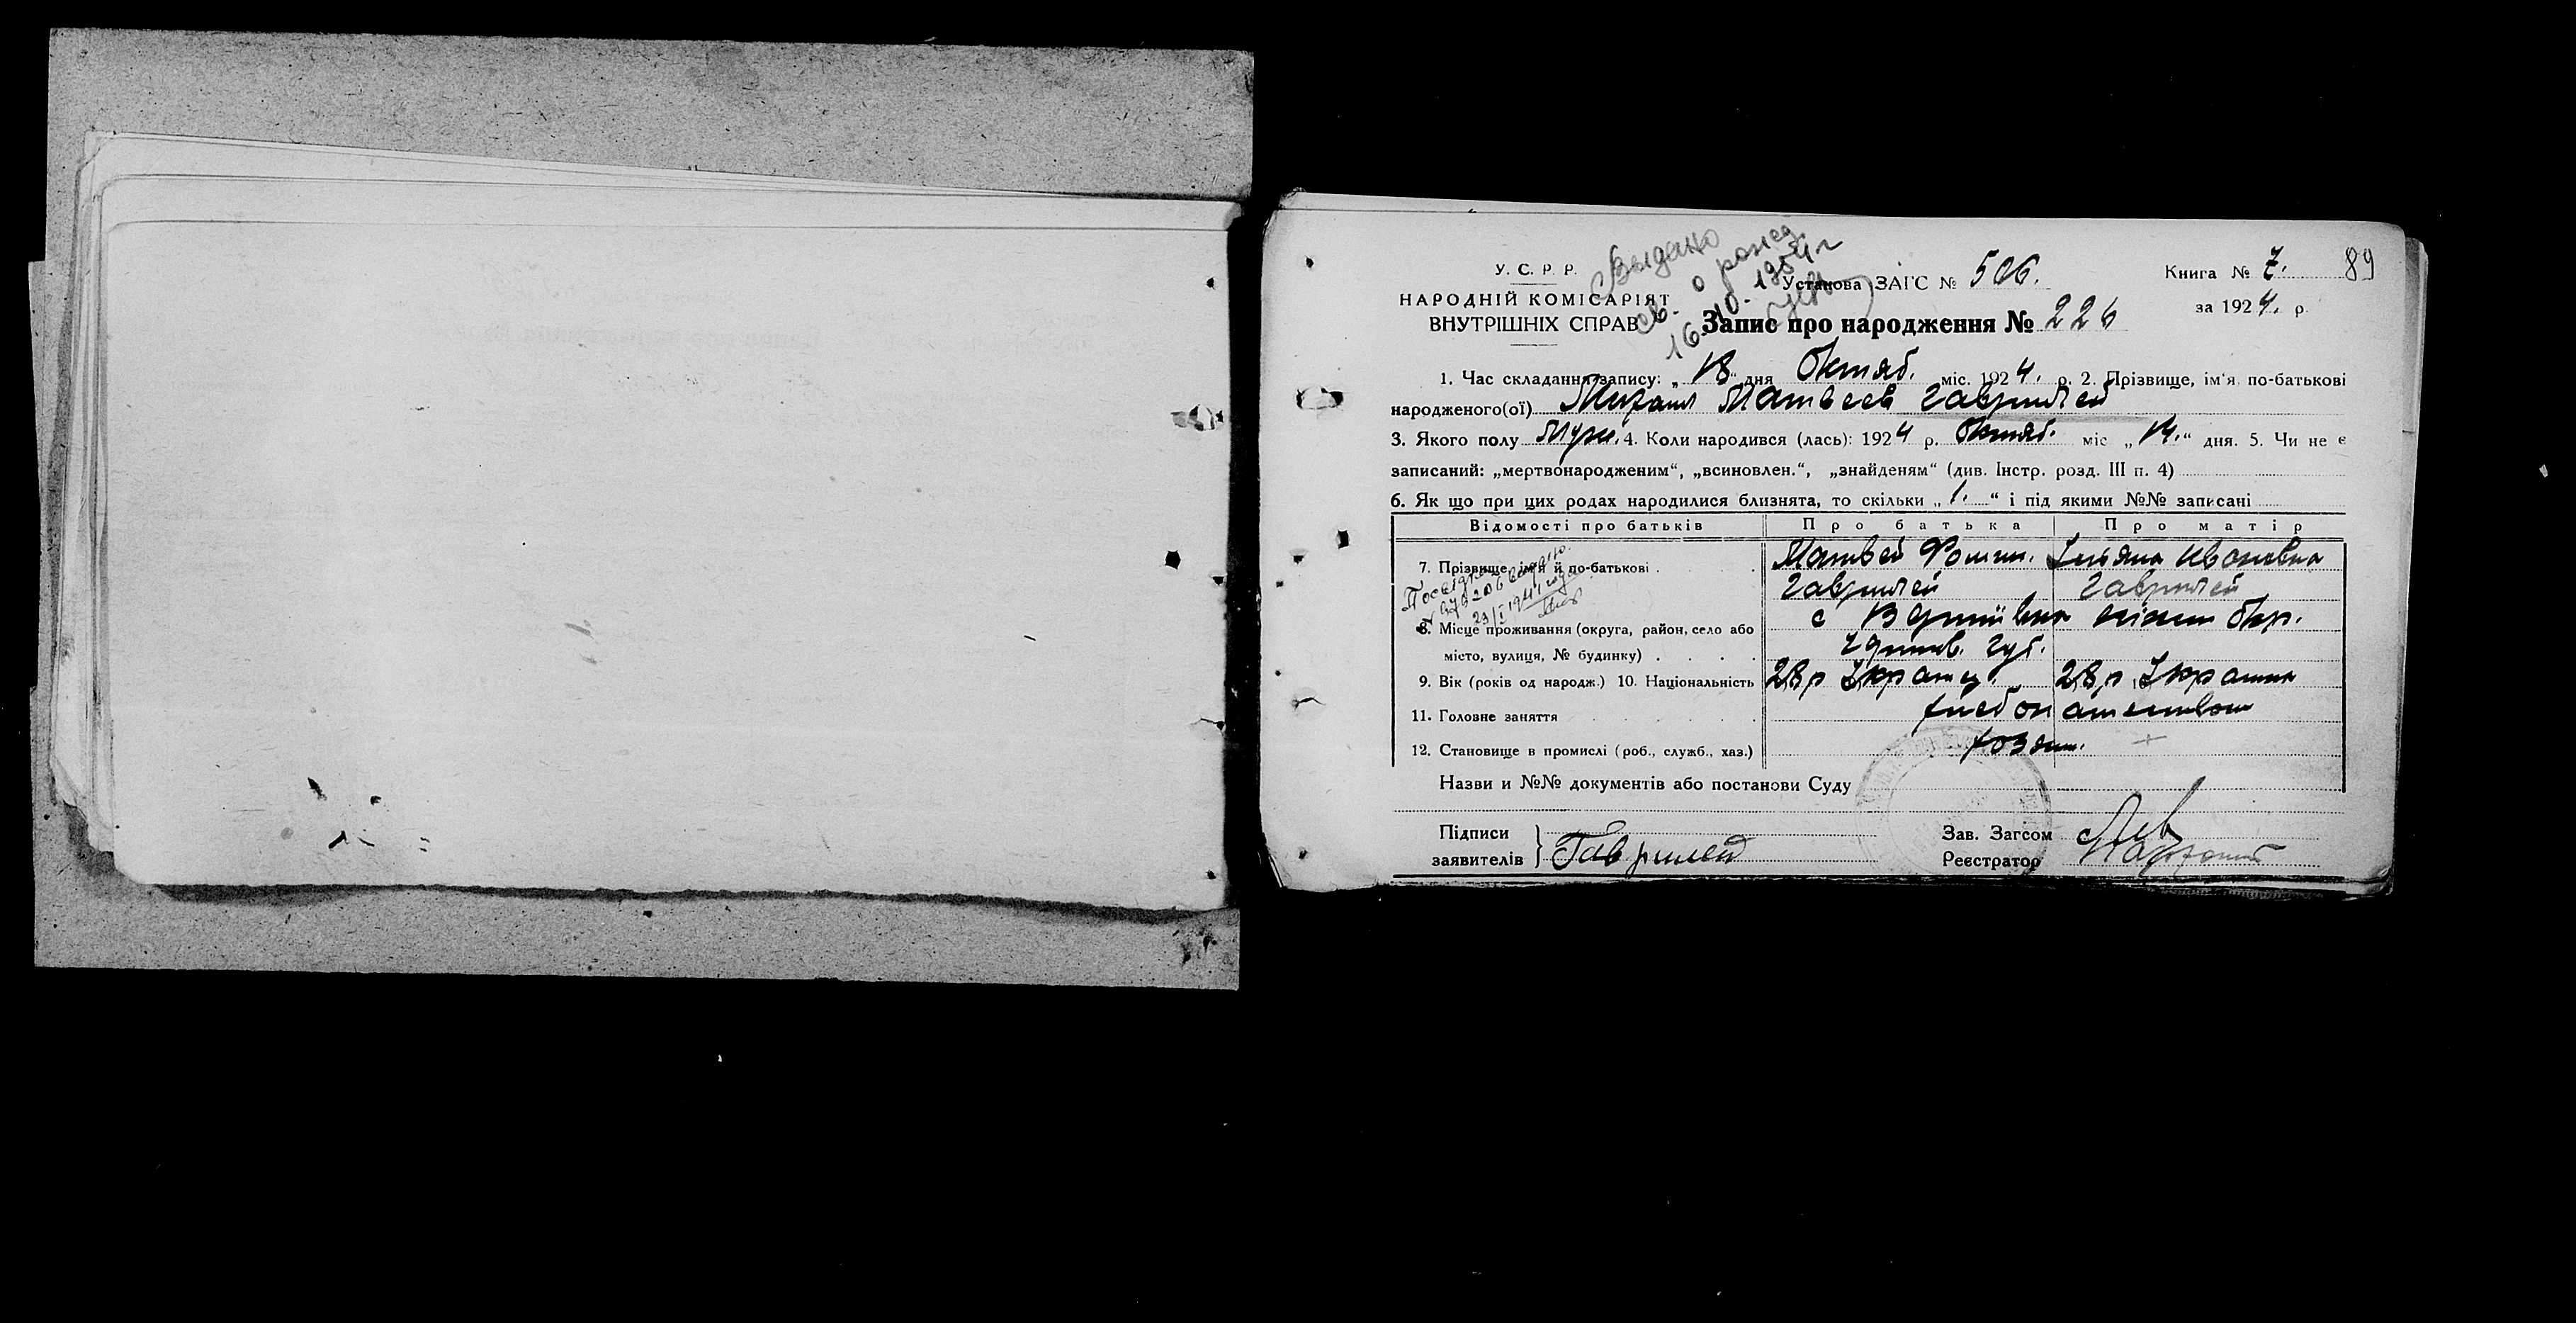 Выдано
св. о рожд
16. 10. 1954 г
У. С. Р. Р.
НАРОДНІЙ КОМІСАРІЯТ
ВНУТРІШНІХ СПРАВ
Установа ЗАГС № 506.
Книга № 7. 89
за 1924. р.
Запис про народження № 226
1. Час складання запису: „18“ дня Октяб. міс. 1924. р. 2. Прізвище, ім'я по-батькові
народженого(ої) Михаил Матвеев Гаврилей
3. Якого полу Муж. 4. Коли народився (лась): 1924 р. Октяб. міс „14.“ дня. 5. Чи не є
записаний: „мертвонародженим“, „всиновлен.“, „знайденям“ (див. Інстр. розд. III п. 4)
6. Як що при цих родах народилися близнята, то скільки „1.“ і під якими №№ записані
Відомості про батьків Про батька Про матір
7. Прізвище, ім'я й по-батькові . Матвей Фомич. Ульяна Ивановна
Гаврилей Гаврилей
8. Місце проживання (округа, район, село або с Окр.
місто, вулиця, № будинку) . . . . губ.
9. Вік (років од народж.) 10. Національність 28 р Украинц. 28 р. Украинка
11. Головне заняття хлебопашеством
12. Становище в промислі (роб., служб., хаз.) хозяин.
Назви и №№ документів або постанови Суду
Підписи
заявителів } Гаврилей
Зав. Загсом
Реєстратор